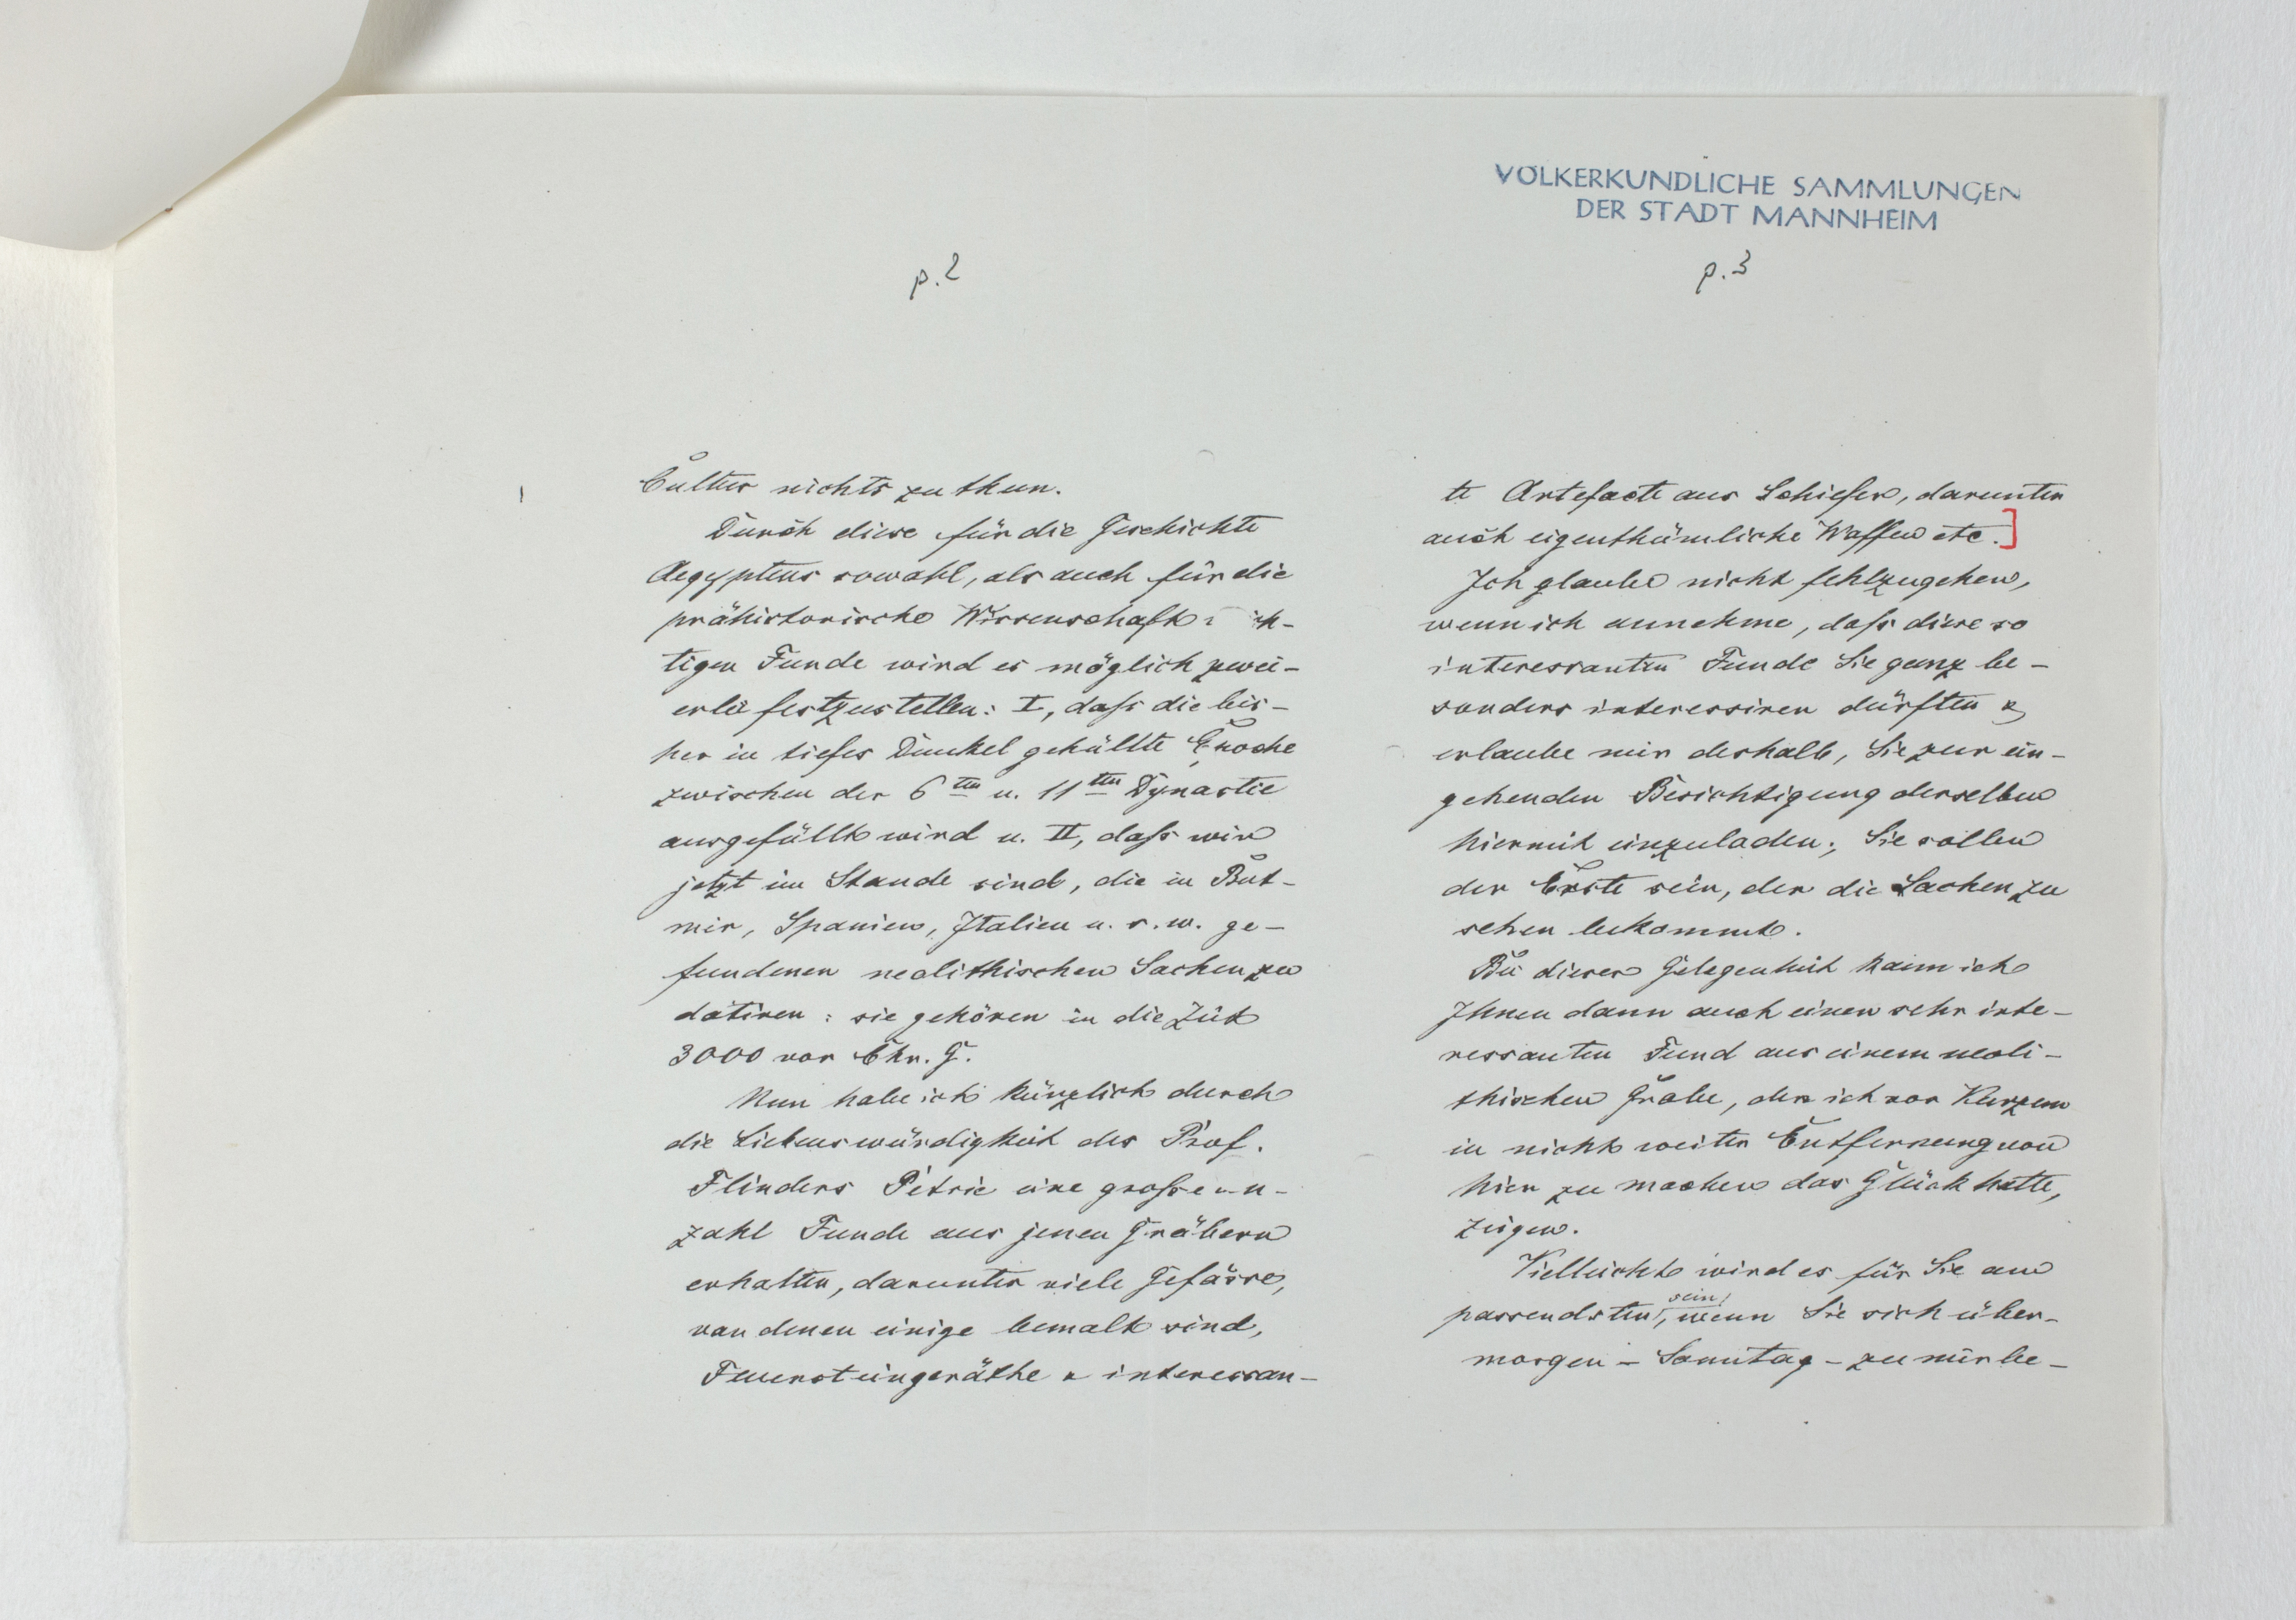 VÖLKERKUNDLICHE SAMMLUNGEN
DER STADT MANNHEIM
p. 2
Cultur nichts zu thun.
Durch diese für die Geschichte
Aegyptens sowohl, als auch für die
prähistorische Wissenschaft
tigen Funde wird es möglich zwei-
erlei festzustellen: I, daſs die bis-
her in tiefes Dunkel gehüllte Epoche
zwischen der 6ten u. 11ten Dynastie
ausgefüllt wird u. II, daſs wir
jetzt im Stande sind, die in But-
mir, Spanien, Italien u. s. w. ge-
fundenen neolithischen Sachen zu
datiren: sie gehören in die Zeit
3000 vor Chr. G.
Nun habe ich kürzlich durch
die Liebenswürdigkeit des Prof.
Flinders Petrie eine groſse An-
zahl Funde aus jenen Gräbern
erhalten, darunter viele Gefässe,
von denen einige bemalt sind,
Feuersteingeräthe & interessan-
p. 3
te Artefacte aus Schiefer, darunter
auch eigenthümliche Waffen etc.]
Ich glaube nicht fehlzugehen,
wenn ich annehme, daſs diese so
interessanten Funde Sie ganz be-
sonders interessiren dürften &
erlaube mir deshalb, Sie zur ein-
gehenden Besichtigung derselben
hiermit einzuladen; Sie sollen
der Erste sein, der die Sachen zu
sehen bekommt.
Bei dieser Gelegenheit kann ich
Ihnen dann auch einen sehr inte-
ressanten Fund aus einem neoli-
thischen Grabe, den ich vor Kurzem
in nicht weiter Entfernung von
hier zu machen das Glück hatte,
zeigen.
Vielleicht wird es für Sie am
passendsten sein, wenn Sie sich über-
morgen - Sonntag - zu mir be-